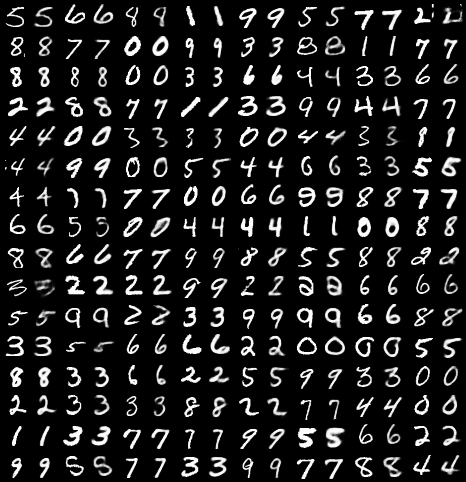 5 5 6 6 8 8 1 1 9 9 5 5 7 7 2 2
8 8 7 7 0 0 9 9 3 3 8 8 1 1 7 7
8 8 8 8 0 0 3 3 6 6 4 4 3 3 6 6
2 2 8 8 7 7 1 1 3 3 9 9 4 4 7 7
4 4 0 0 3 3 3 3 0 0 4 4 3 3 1 1
4 4 9 9 0 0 5 5 4 4 6 6 3 3 5 5
4 4 7 7 7 7 0 0 6 6 9 9 8 8 7 7
6 6 5 5 0 0 4 4 4 4 1 1 0 0 8 8
8 8 6 6 7 7 9 9 8 8 5 5 8 8 2 2
3 3 2 2 2 2 9 9 2 2 2 2 6 6 6 6
5 5 9 9 2 2 3 3 9 9 9 9 6 6 8 8
3 3 5 5 6 6 6 6 2 2 0 0 0 0 5 5
8 8 3 3 6 6 2 2 5 5 9 9 3 3 0 0
2 2 3 3 3 3 8 8 2 2 7 7 4 4 0 0
1 1 3 3 7 7 7 7 9 9 5 5 6 6 2 2
9 9 5 5 7 7 3 3 9 9 7 7 8 8 4 4